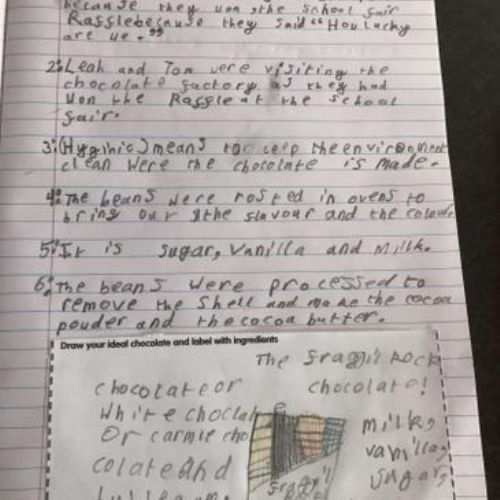 because they won the school fair
Rasslebecause they said "How lucky
are we."
2: Leah and Tom were visiting the
chocolate factory as they had
won the Rassle at the school
fair.
3: (Hyginic) means to ceep the environment
clean were the chocolate is made.
4: The beans were rosted in ovens to
bring our the flavour and the colour
5: It is sugar, vanilla and milk.
6: The beans were processed to
remove the shell and make the cocoa
powder and the cocoa butter.
Draw your ideal chocolate and label with ingredients
The fraggil Rock
chocolate!
chocolate or
White choclate
Or carmie cho
colate and
milk,
vanilla,
sugar,
fraggil